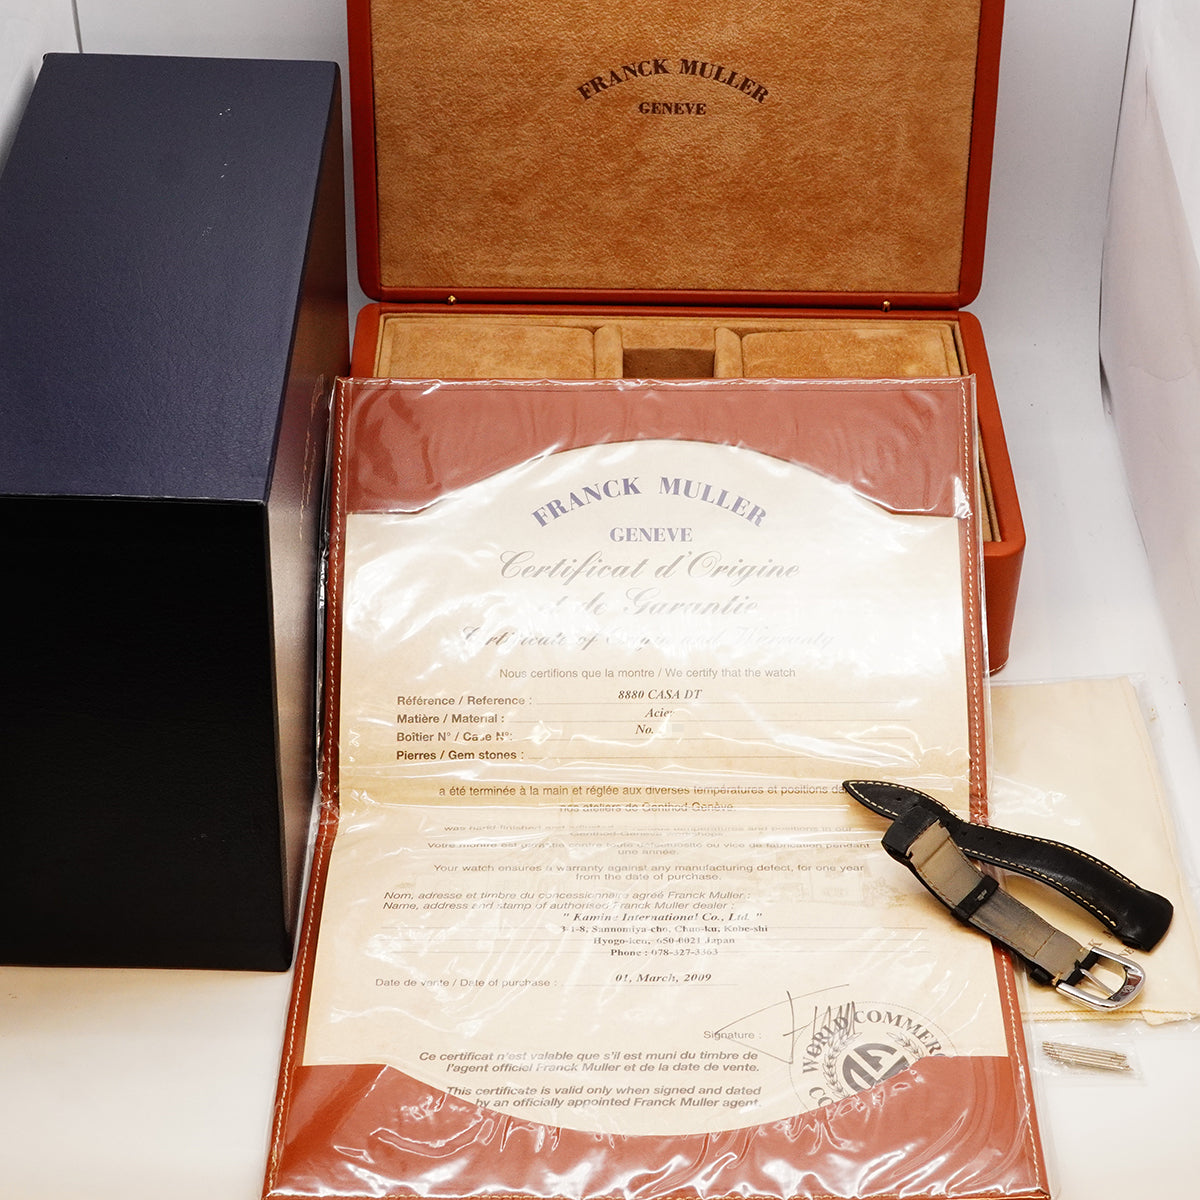 FRANCK MULLER
GENEVE
FRANCK MULLER
GENEVE
Certificat d'Origine
et de Garantie
Certificate of Origin and Warranty
Nous certifions que la montre / We certify that the watch
Référence / Reference : 8880 CASA DT
Matière / Material : Acier
Boîtier N° / Case N°: No.
Pierres / Gem stones :
a été terminée à la main et réglée aux diverses températures et positions
nos ateliers de Genthod-Genève.
was hand finished and adjusted at various temperatures and positions in our
Genthod-Geneva workshops.
Votre montre est garantie contre toute défectuosité ou vice de fabrication pendant
une année.
Your watch ensures a warranty against any manufacturing defect, for one year
from the date of purchase.
Nom, adresse et timbre du concessionnaire agréé Franck Muller :
Name, address and stamp of authorised Franck Muller dealer :
" Kamine International Co., Ltd. "
3-1-8, Sannomiya-cho, Chuo-ku, Kobe-shi
Hyogo-ken, 650-0021 Japan
Phone : 078-327-3363
Date de vente / Date of purchase : 01, March, 2009
Signature :
WORLD COMMER
Ce certificat n'est valable que s'il est muni du timbre de
l'agent officiel Franck Muller et de la date de vente.
This certificate is valid only when signed and dated
by an officially appointed Franck Muller agent.